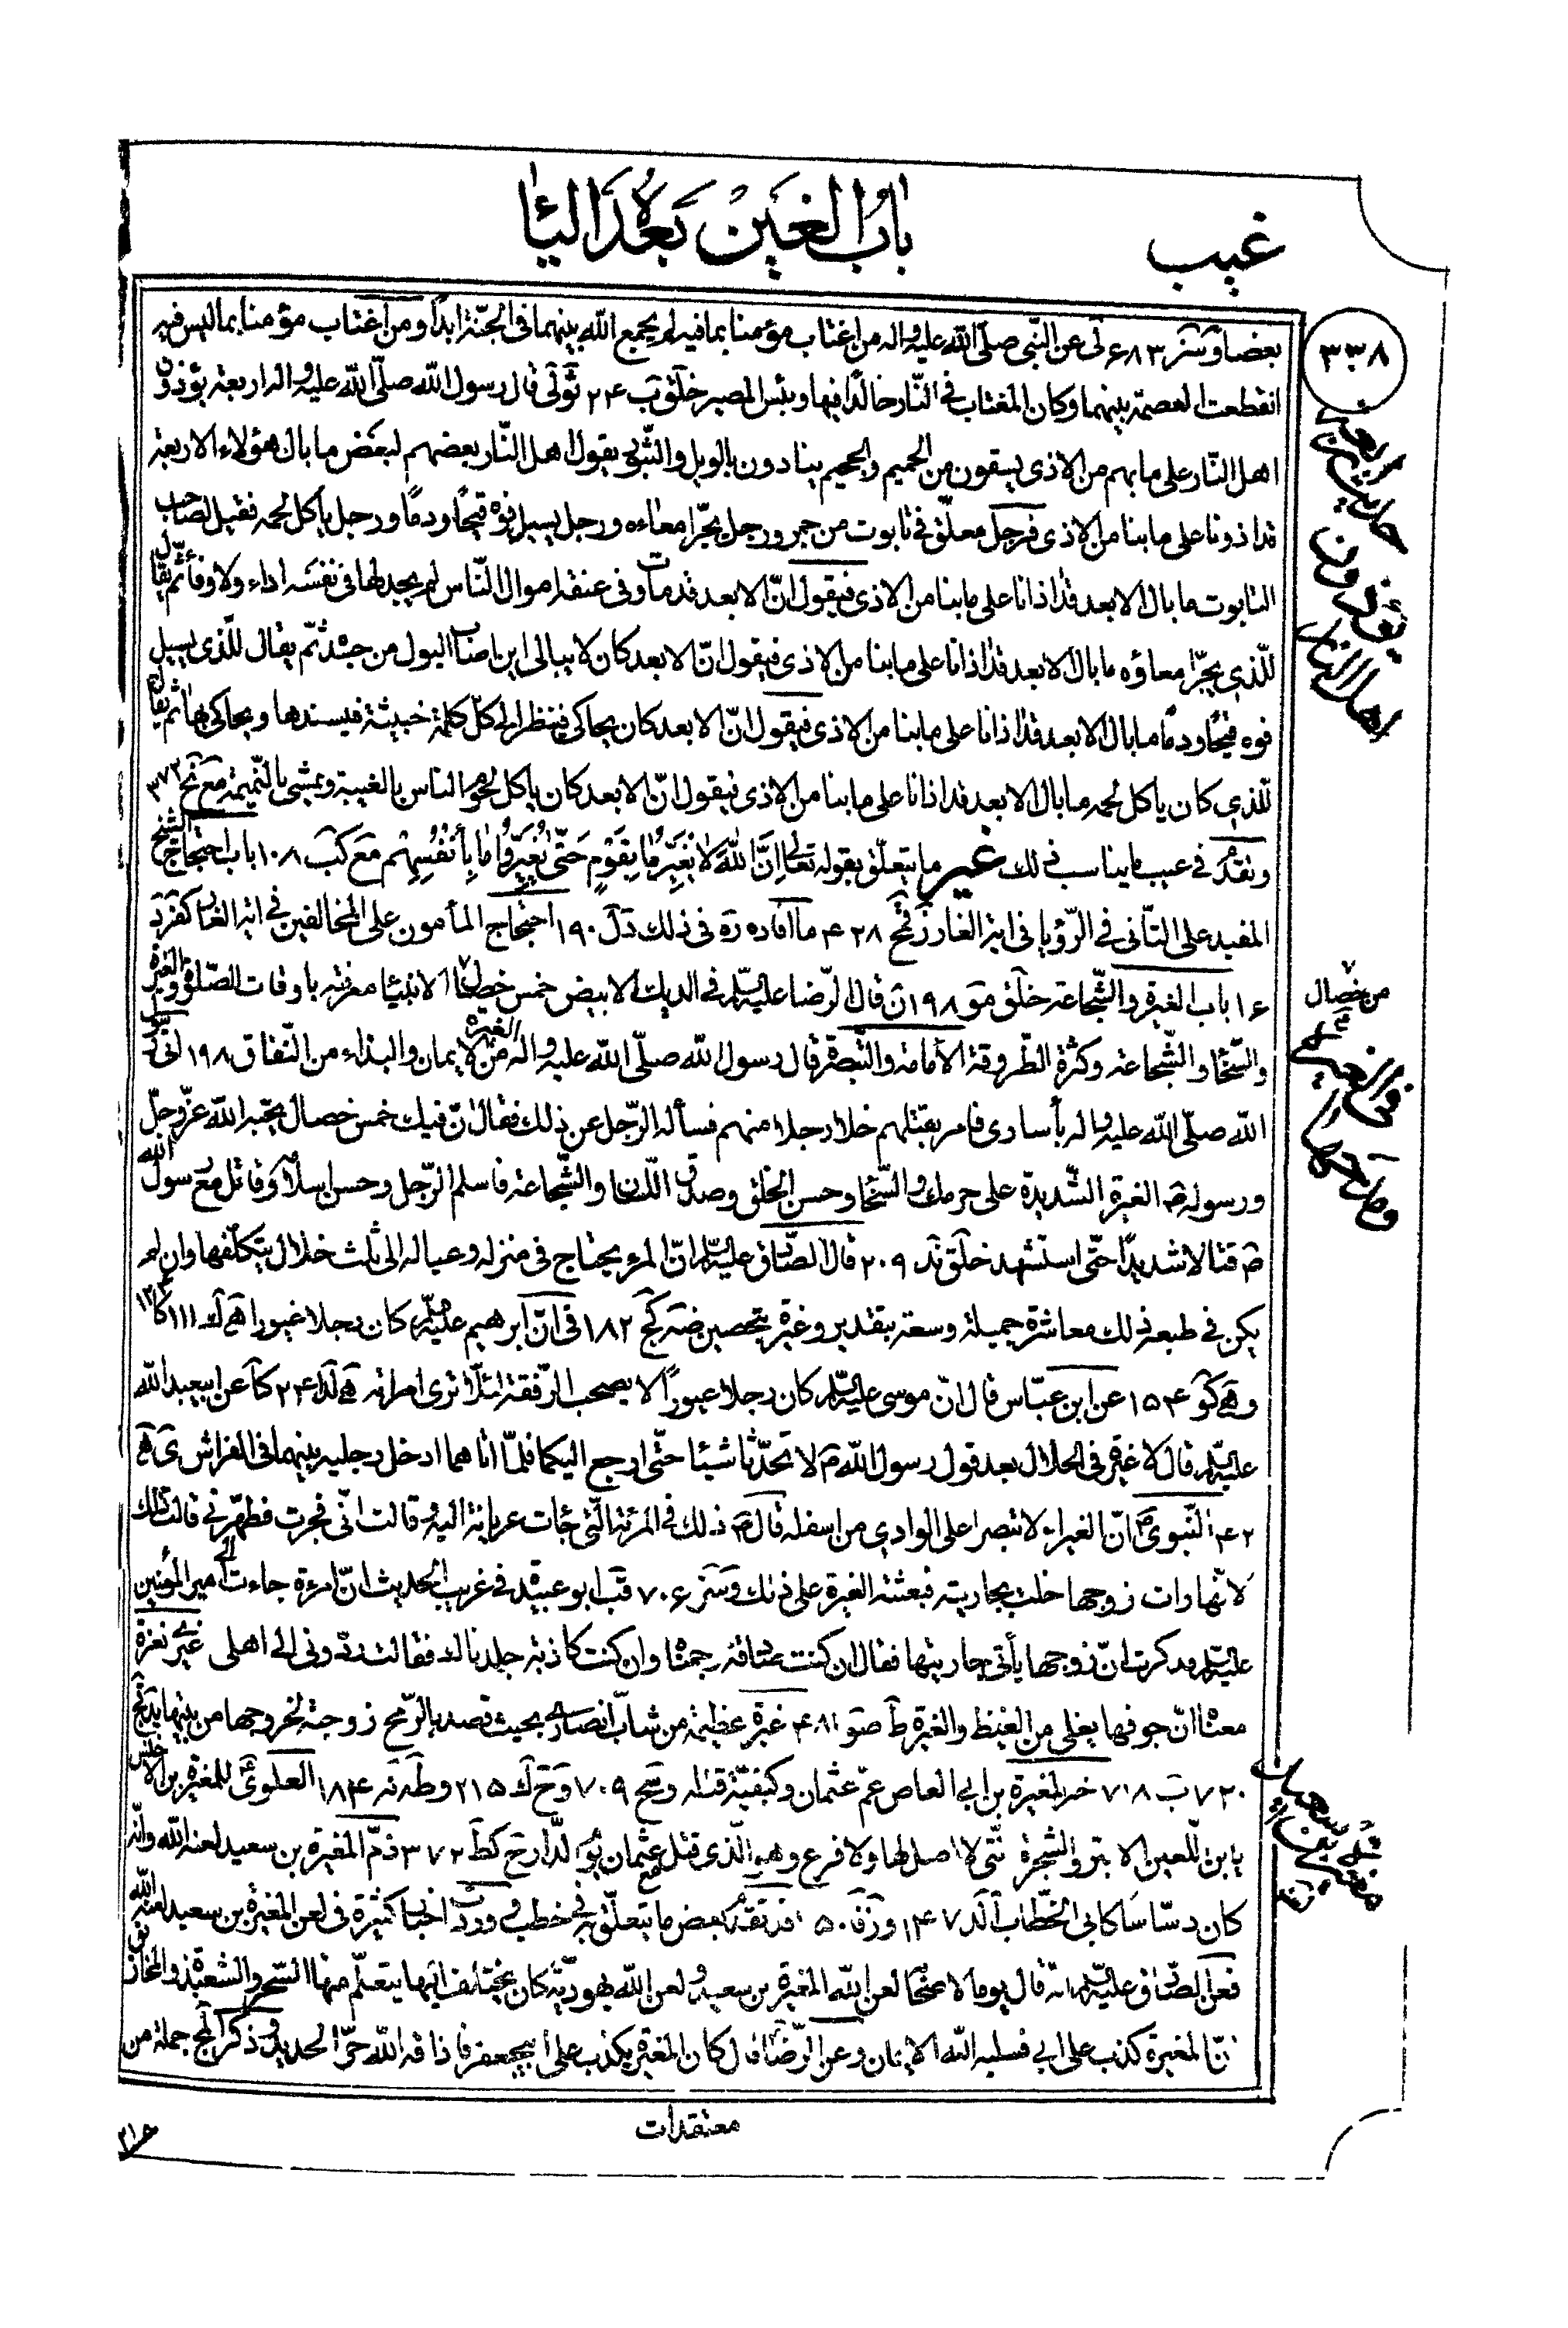 غيب
باب الغين بعده الياء
٣٣٨
بعضا وسز ٦٨٣ لى عن النّبي صلّى الله عليه واله من اغتاب مؤمنا بما فيه لم يجمع الله بينهما في الجنّة ابدًا ومن اغتاب مؤمنا بما ليس فيه
انقطعت العصمة بينهما وكان المغتاب في النّار خالدًا فيها وبئس المصير خلق ب ٢٤ ثو لى قال رسول الله صلّى الله عليه واله اربعة يؤذون
اهل النّار على ما بهم من الاذى يسقون من الحميم والجحيم ينادون بالويل والثّبور يقول اهل النّار بعضهم لبعض ما بال هؤلاء الاربعة
قد اذونا على ما بنا من الاذى فرجل معلّق في تابوت من جمر ورجل يجرّ امعاءه ورجل يسيل فوه قيحًا ودمًا ورجل ياكل لحمه فقيل لصاحب
التابوت ما بال الابعد قد اذانا على ما بنا من الاذى فيقول انّ الابعد قد مات وفي عنقه اموال النّاس لم يجد لها في نفسه اداء ولا وفاء ثم يقال
للّذي يجرّ امعاؤه ما بال الابعد قد اذانا على ما بنا من الاذى فيقول انّ الابعد كان لا يبالي اين اصاب البول من جسده ثمّ يقال للّذي يسيل
فوه قيحًا ودمًا ما بال الابعد قد اذانا على ما بنا من الاذى فيقول انّ الابعد كان يحاكي فينظر الى كلّ كلمة خبيثة فيسندها ويحاكي بها ثم يقال
للّذي كان ياكل لحمه ما بال الابعد قد اذانا على ما بنا من الاذى فيقول انّ الابعد كان ياكل لحوم الناس بالغيبة ويمشي بالنّميمة مع نح ٣٧٣
وتقدّم في عيب ما يناسب ذلك غير ما يتعلّق بقوله تعالى اِنَّ اللّٰهَ لا يُغَيِّرُ ما بِقَوْمٍ حَتّى يُغَيِّرُوا ما بِأَنْفُسِهِمْ مع كب ١٠٨ باب احتجاج الشيخ
المفيد على الثّاني في الرّؤيا في اية الغار ز فح ٤٢٨ ما افاده ره في ذلك دل ١٩٠ احتجاج المأمون على المخالفين في اية الغار كفر د
١٦ باب الغيرة والشّجاعة خلق مو ١٩٨ ن قال الرّضا عليه السّلم في الديك الابيض خمس خصال من خصال الانبياء معرفته باوقات الصّلوة والغيرة
والسّخاء والشّجاعة وكثرة الطّروقة الامامة والتّبصرة قال رسول الله صلّى الله عليه واله الغيرة من الايمان والبذاء من النّفاق ١٩٨ اتى رسول
الله صلّى الله عليه واله بأسارى فامر بقتلهم خلا رجلا منهم فسأله الرّجل عن ذلك فقال انّ فيك خمس خصال يحبّه الله عزّ وجلّ
ورسوله ص الغيرة الشّديدة على حرمك والسّخاء وحسن الخلق وصدق اللّسان والشّجاعة فاسلم الرّجل وحسن اسلامه وقاتل مع رسول الله
ص قتالا شديدًا حتّى استشهد خلق ند ٢٠٩ قال الصّادق عليه السّلم انّ المرء يحتاج في منزله وعياله الى ثلث خلال يتكلّفها وان لم
يكن في طبعه ذلك معاشرة جميلة وسعة بتقدير وغيرة بتحصين ضه كج ١٨٢ في انّ ابرهيم عليه السّلم كان رجلا غيورا ه ك ١١١ كا ١٣٤
وه كو ١٥٤ عن ابن عبّاس قال انّ موسى عليه السّلم كان رجلا غيورًا لا يصحب الرّفقة لئلّا ترى امراته ه لد ٢٤ كا عن ابيعبد الله
عليه السّلم قال لا غيرة في الحلال بعد قول رسول الله ص لا تحدّثا شيئا حتّى ارجع اليكما فلمّا اتاهما ادخل رجليه بينهما في الفراش ى ه
٤٢ النّبوي ص انّ الغيراء لا تبصر اعلى الوادي من اسفله قال ص ذلك في المرئة الّتي جاءت عريانة اليه وقالت انّي فجرت فطهّرني قالت ذلك
لانّها رات زوجها خلت بجاريته فبعثته الغيرة على ذلك وسز ٧٠٦ قب ابو عبيد في غريب الحديث انّ امرءة جاءت الى امير المؤمنين
عليه السّلم فذكرت انّ زوجها يأتي جاريتها فقال ان كنت صادقة رجمناه وان كنت كاذبة جلدناك فقالت ردّوني الى اهلي غيرى نغرة
معناه انّ جوفها يغلي من الغيظ والغيرة ط صو ٤٨١ غيرة عظيمة من شابّ انصاري بحيث قصد بالرّمح زوجته لخروجها من بيتها يد تح
٧٢٠ ب ٧١٨ خبر المغيرة بن ابي العاص عمّ عثمان وكيفيّة قتله وسح ٧٠٩ وح ك ٢١٥ وط نه ١٨٤ العلوي للمغيرة بن الاخنس
يا بن اللّعين الابتر والشجرة الّتي لا اصل لها ولا فرع وهو الّذي قتل مع عثمان يوم الدّار ح كط ٣٧٢ ذمّ المغيرة بن سعيد لعنه الله وانّه
كان دسّاسًا كابي الخطّاب ا لد ١٤٧ وز ف ٥٠ وقد تقدّم بعض ما يتعلّق به في خطب وورد اخبار كثيرة في لعن المغيرة بن سعيد لعنه الله
فعن الصّادق عليه السّلم انّه قال يوما لاصحابه لعن الله المغيرة بن سعيد ولعن الله يهوديّة كان يختلف اليها يتعلّم منها السّحر والشعبذة والمخاريق
انّ المغيرة كذب على ابي فسلبه الله الايمان وعن الرّضا قال كان المغيرة يكذب على ابيجعفر فاذاقه الله حرّ الحديد وذكر المج جملة من
من خصال
معتقدات